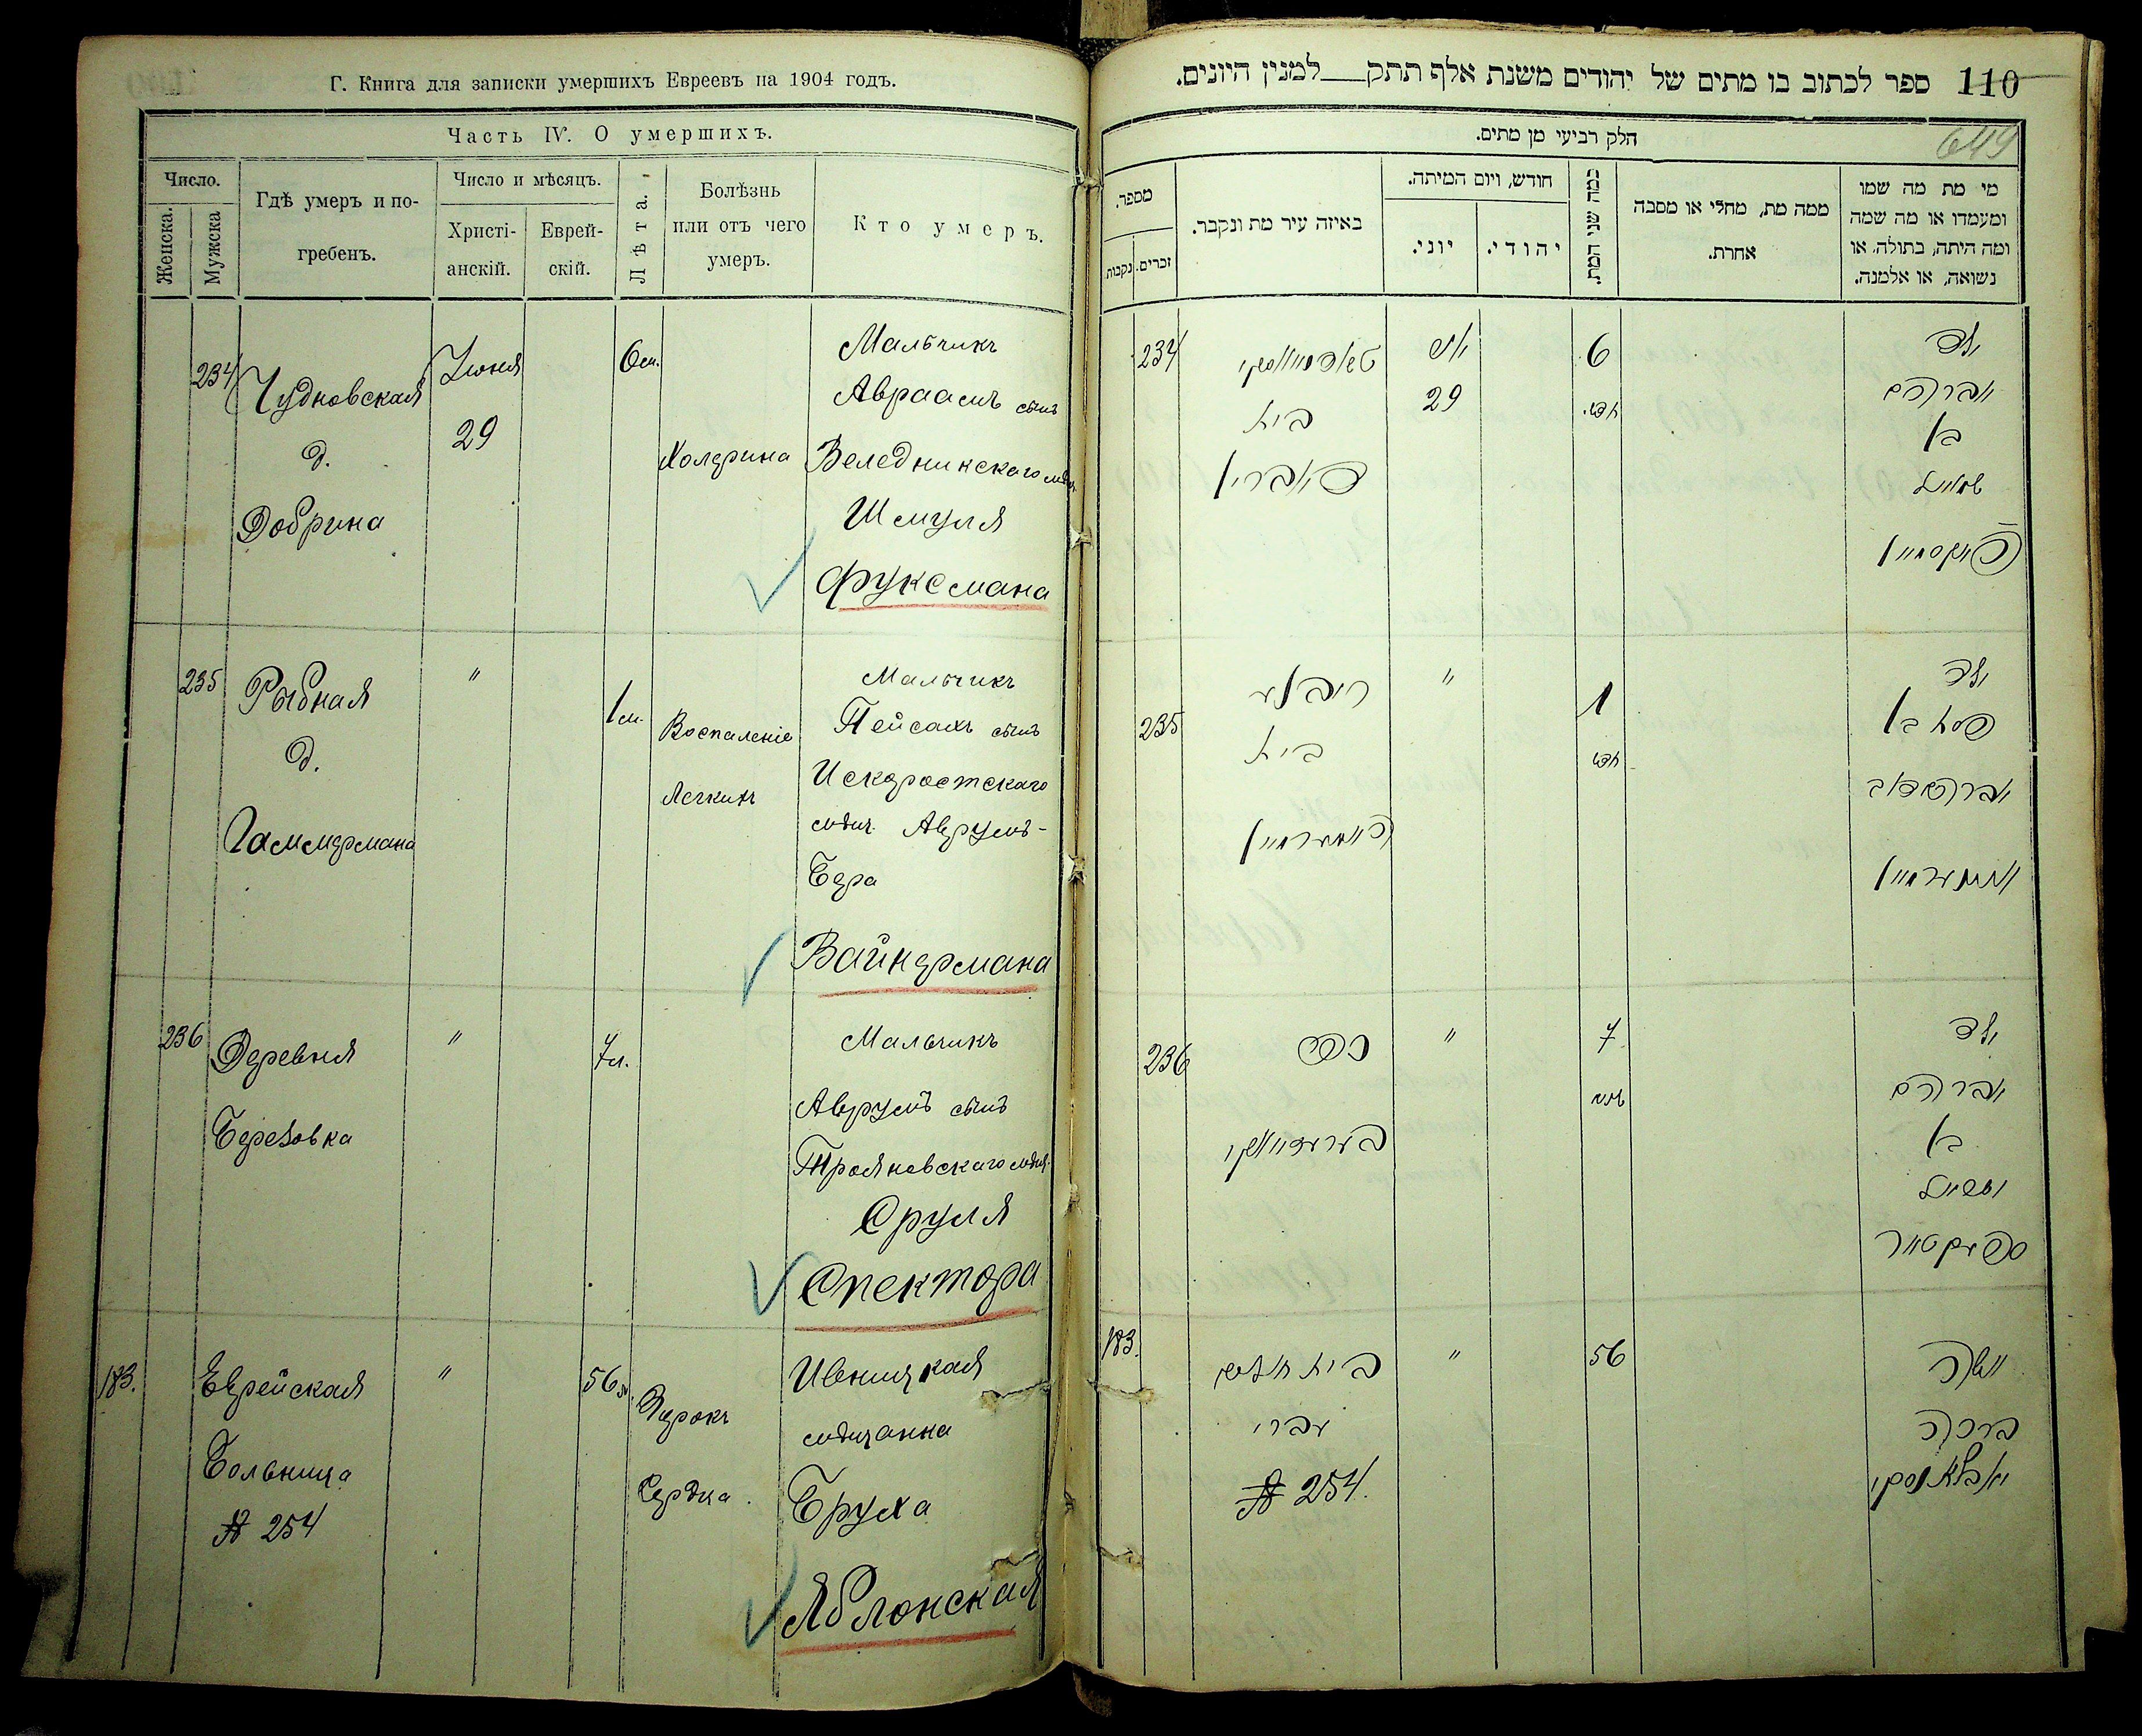 Г. Книга для записки умершихъ Евреевъ на 1904 годъ.
Часть IV. О умершихъ.
Число.
Женска.
Мужска
Гдѣ умеръ и по-
гребенъ.
Число и мѣсяцъ.
Христі-
анскій.
Еврей-
скій.
Лѣта.
Болѣзнь
или отъ чего
умеръ.
Кто умеръ.
234
Чудновская
д.
Добрина
Іюня
29
6 м.
Холерина
Мальчикъ
Авраамъ сынъ
Веледникскаго мѣщ.
Шмуля
Фуксмана
235
Рыбная
д.
Гаммермана
"
1 м.
Воспаленіе
Легкихъ
Мальчикъ
Пейсахъ сынъ
Искоростскаго
мѣщ. Аврумъ-
Бера
Вайнермана
236
Деревня
Березовка
"
7 л.
Мальчикъ
Аврумъ сынъ
Трояновскаго мѣщ.
Сруля
Спектора
183.
Еврейская
Больница
№ 254
"
56 л.
Порокъ
Сердца.
Ивницкая
мѣщанка
Бруха
Яблонская
110 ספר לכתוב בו מתים של יהודים משנת אלף תתק למנין היונים.
649
חלק רביעי מן מתים.
מספר.
נקבות
זכרים.
באיזה עיר מת ונקבר.
חודש, ויום המיתה.
יוני.
יהודי.
כמה שני המת.
ממה מת, מחלי או מסבה
אחרת.
מי מת מה שמו
ומעמדו או מה שמה
ומה היתה, בתולה, או
נשואה, או אלמנה.
234
בית
דאברין
29
6
חדש
ילד
אברהם
בן
שמואל
פוקסמאן
235
ריבנע
בית
האמערמאן
"
1
חדש
ילד
פסח בן
אברהם דוב
וויינערמאן
236
כפר
"
7
שנה
ילד
אברהם
בן
ישראל
ספעקטאר
183.
בית חולים
עברי
№ 254.
"
56
אשה
ברכה
יאבלאנסקי